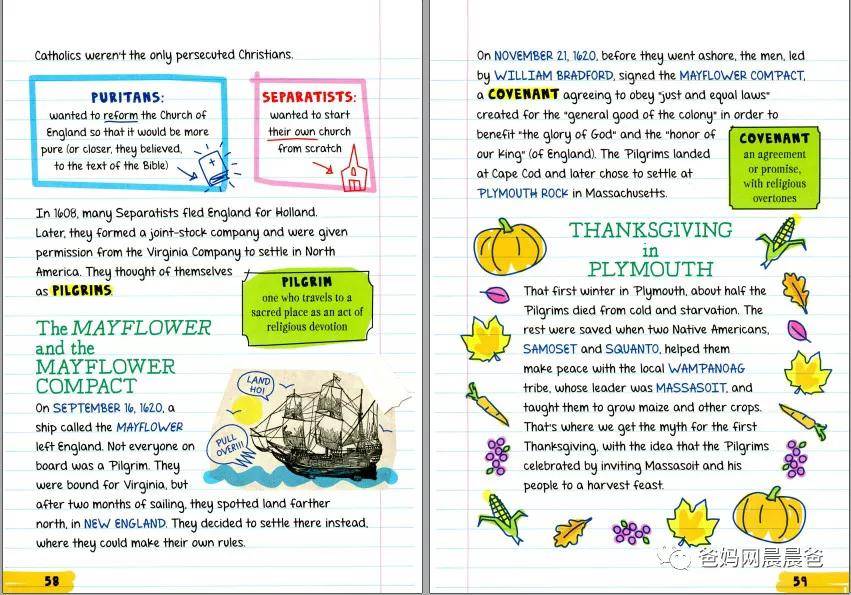 Catholics weren't the only persecuted Christians.
PURITANS:
wanted to reform the Church of
England so that it would be more
pure (or closer, they believed,
to the text of the Bible)
SEPARATISTS:
wanted to start
their own church
from scratch
In 1608, many Separatists fled England for Holland.
Later, they formed a joint-stock company and were given
permission from the Virginia Company to settle in North
America. They thought of themselves
as PILGRIMS.
PILGRIM
one who travels to a
sacred place as an act of
religious devotion
The MAYFLOWER
and the
MAYFLOWER
COMPACT
On SEPTEMBER 16, 1620, a
ship called the MAYFLOWER
left England. Not everyone on
board was a Pilgrim. They
were bound for Virginia, but
after two months of sailing, they spotted land farther
north, in NEW ENGLAND. They decided to settle there instead,
where they could make their own rules.
LAND
HO!
PULL
OVER!!!
58
On NOVEMBER 21, 1620, before they went ashore, the men, led
by WILLIAM BRADFORD, signed the MAYFLOWER COMPACT,
a COVENANT agreeing to obey "just and equal laws"
created for the "general good of the colony" in order to
benefit "the glory of God" and the "honor of
our King" (of England). The Pilgrims landed
at Cape Cod and later chose to settle at
PLYMOUTH ROCK in Massachusetts.
COVENANT
an agreement
or promise,
with religious
overtones
THANKSGIVING
in
PLYMOUTH
That first winter in Plymouth, about half the
Pilgrims died from cold and starvation. The
rest were saved when two Native Americans,
SAMOSET and SQUANTO, helped them
make peace with the local WAMPANOAG
tribe, whose leader was MASSASOIT, and
taught them to grow maize and other crops.
That's where we get the myth for the first
Thanksgiving, with the idea that the Pilgrims
celebrated by inviting Massasoit and his
people to a harvest feast.
爸妈网晨晨爸
59